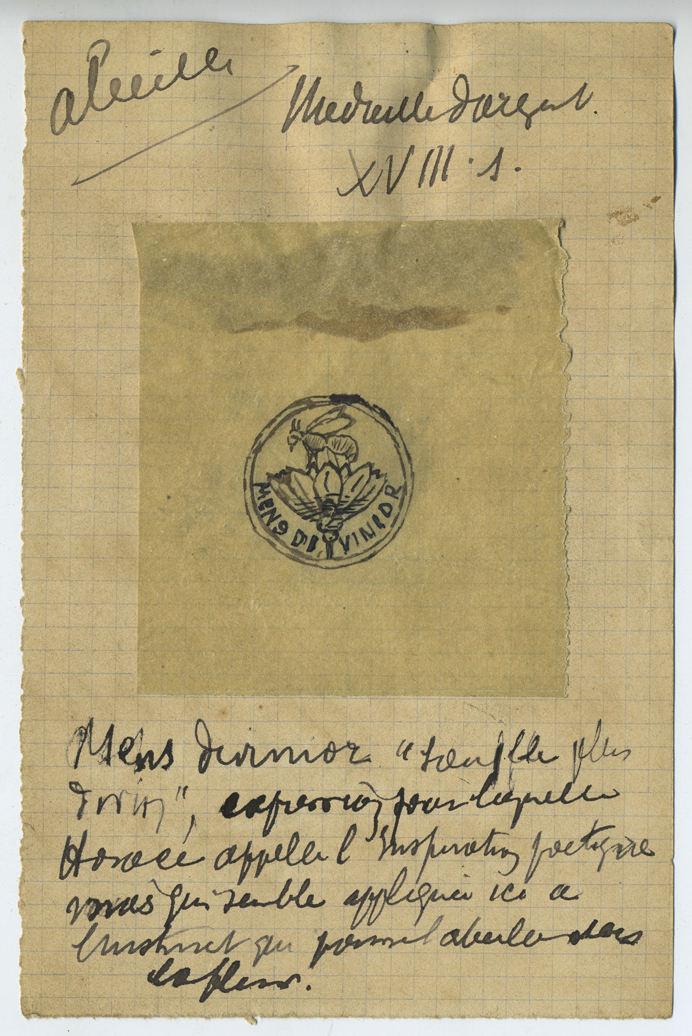 abeille
Medaille d'argent.
XVIII. s.
MENS DIVINIOR
Mens divinior "souffle plus
divin", expression sous laquelle
Horace appelle l'inspiration poétique
mais qui semble appliquée ici a
l'instinct qui pousse l'abeille vers
la fleur.